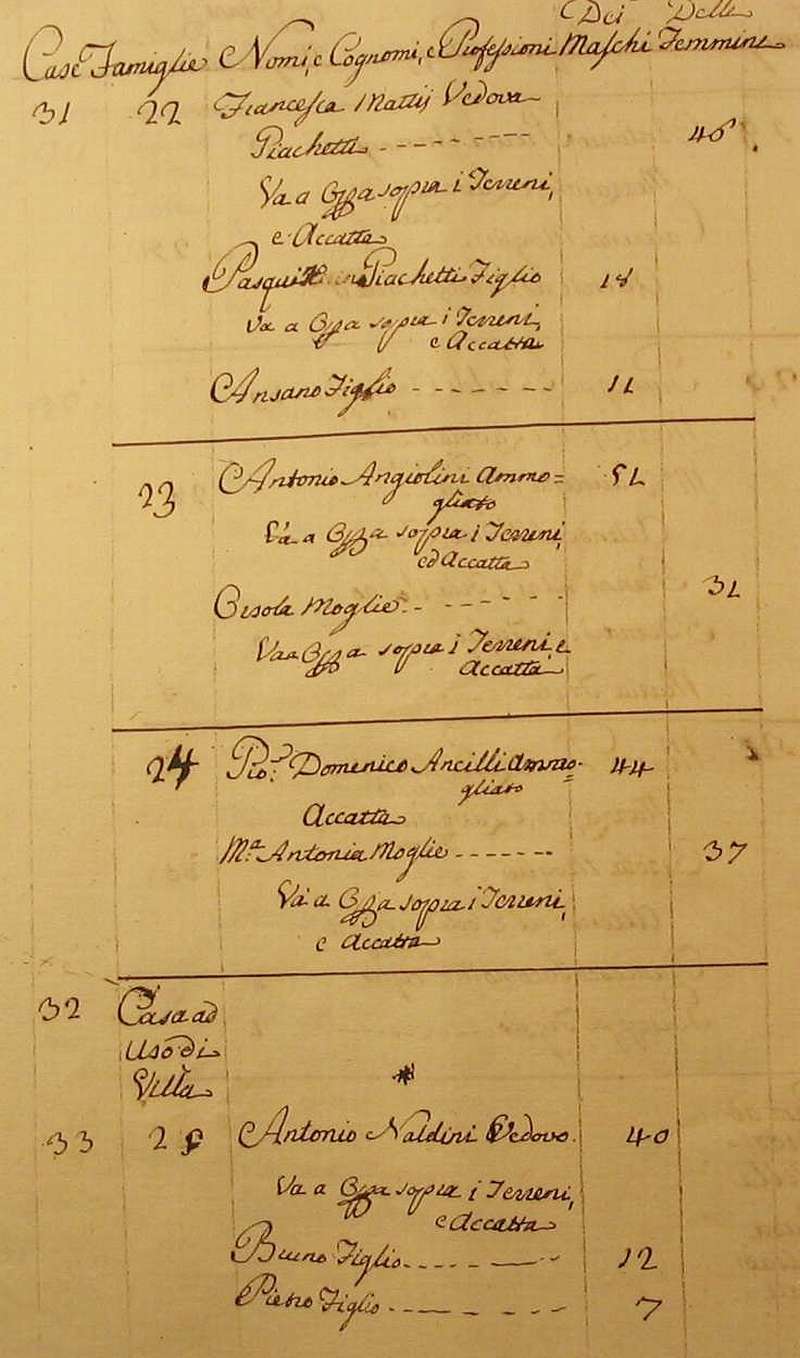 Dei Delle
Case Famiglie Nomi, e Cognomi, e Professioni Maschi Femmine
31 22 Francesca Mattij Vedova
Piachetti 46
Va a Opra sopra i Terreni,
e Accatta
Pasquale Piachetti Figlio 18
Va a Opra sopra i Terreni,
e Accatta
Ansano Figlio 11
23 Antonio Angiolini Ammo=
gliato
Va a Opra sopra i Terreni
ed Accatta
Moglie
Va a Opra sopra i Terreni, e
Accatta
24 Pio: Domenico Ancilli Ammo=
gliato 44
Accatta
M.a Antonia Moglie 37
Va a Opra sopra i Terreni,
e Accatta
32 Casa ad
Uso di
Villa
33 25 Antonio Naldini Vedovo 40
Va a Opra sopra i Terreni,
e Accatta
Bruno Figlio 12
Pietro Figlio 7